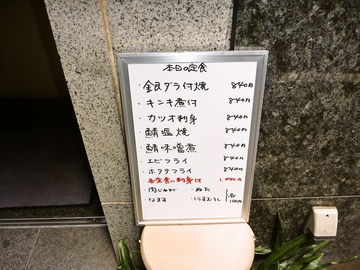 本日の定食
・銀ダラ付焼 840円
・キンキ煮付 840円
・カツオ刺身 840円
・鯖塩焼 840円
・鯖味噌煮 840円
・エビフライ 840円
・ホタテフライ 840円
各定食に刺身付
・肉じゃが ・ぬた
・なます 100円